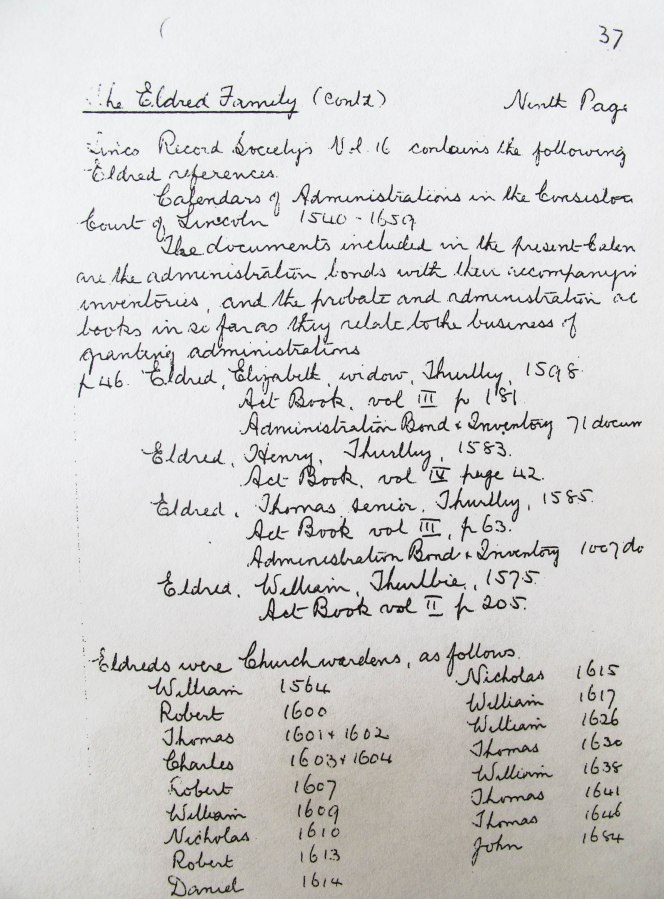 37
The Eldred Family (contd) Ninth Page
Lincs Record Society's Vol. 16 contains the following
Eldred references.
Calendars of Administrations in the Consistor
Court of Lincoln 1540 - 1659
The documents included in the present Calen
are the administration bonds with their accompanyin
inventories, and the probate and administration ac
books in so far as they relate to the business of
granting administrations
p 46. Eldred, Elizabeth, widow, Thurlby, 1598.
Act Book, vol III p 181
Administration Bond & Inventory 71 docum
Eldred, Henry, Thurlby, 1583.
Act Book, vol IV page 42.
Eldred, Thomas senior, Thurlby, 1585.
Act Book vol III, p 63.
Administration Bond & Inventory 1007 do
Eldred, William, Thurlbie, 1575.
Act Book vol II p 205.
Eldreds were Churchwardens, as follows.
William 1564
Robert 1600
Thomas 1601 & 1602
Charles 1603 & 1604
Robert 1607
William 1609
Nicholas 1610
Robert 1613
Daniel 1614
Nicholas 1615
William 1617
William 1626
Thomas 1630
William 1638
Thomas 1641
Thomas 1646
John 1684